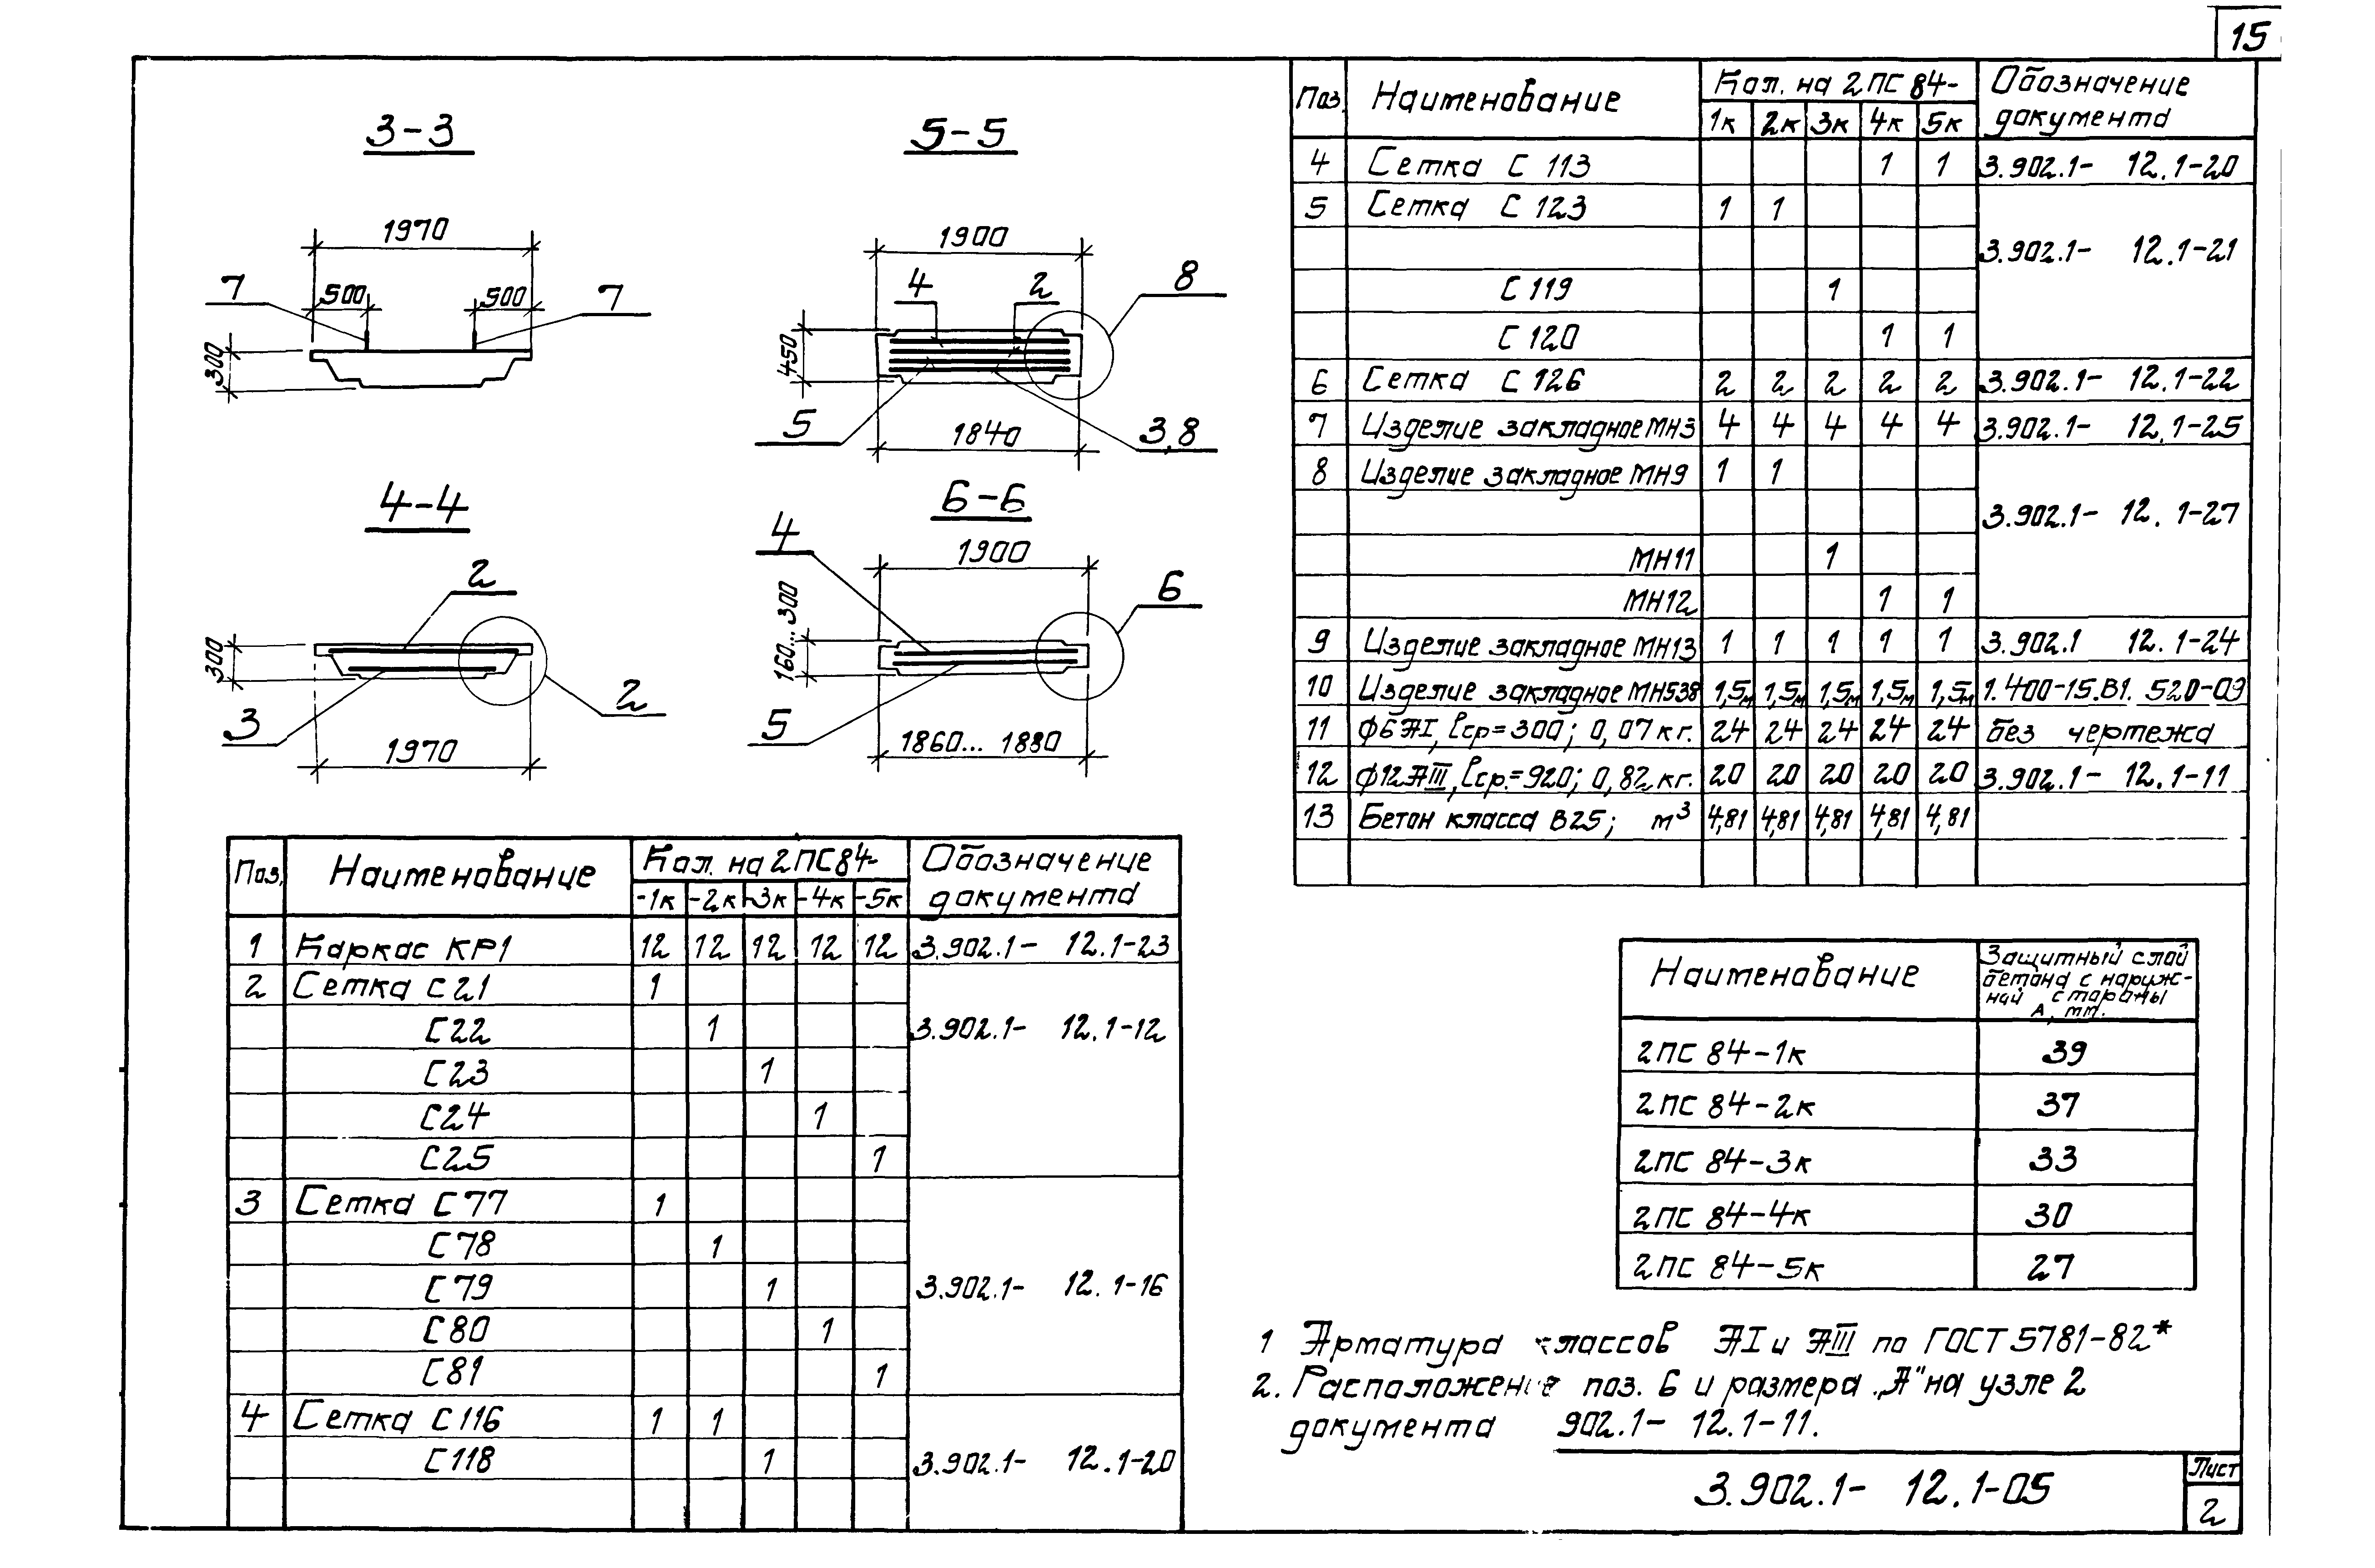 15
3-3
1970
500
500
7
7
300
5-5
1900
4
2
8
450
5
1840
3,8
4-4
2
300
3
1970
2
6-6
4
1900
160...300
6
5
1860...1880
Поз. Наименование Кол. на 2ПС84- Обозначение документа
-1к -2к -3к -4к -5к
1 Каркас КР1 12 12 12 12 12 3.902.1- 12.1-23
2 Сетка С21 1
С22 1 3.902.1- 12.1-12
С23 1
С24 1
С25 1
3 Сетка С77 1
С78 1
С79 1 3.902.1- 12.1-16
С80 1
С81 1
4 Сетка С116 1 1
С118 1 3.902.1- 12.1-20
Поз. Наименование Кол. на 2ПС 84- Обозначение документа
1к 2к 3к 4к 5к
4 Сетка С 113 1 1 3.902.1- 12.1-20
5 Сетка С 123 1 1
3.902.1- 12.1-21
С 119 1
С 120 1 1
6 Сетка С 126 2 2 2 2 2 3.902.1- 12.1-22
7 Изделие закладное МН3 4 4 4 4 4 3.902.1- 12.1-25
8 Изделие закладное МН9 1 1
3.902.1- 12.1-27
МН11 1
МН12 1 1
9 Изделие закладное МН13 1 1 1 1 1 3.902.1 12.1-24
10 Изделие закладное МН538 1,5м 1,5м 1,5м 1,5м 1,5м 1.400-15.В1. 520-09
11 ϕ6АI, lср=300; 0,07кг. 24 24 24 24 24 без чертежа
12 ϕ12АIII, lср.=920; 0,82кг. 20 20 20 20 20 3.902.1- 12.1-11
13 Бетон класса В25; м³ 4,81 4,81 4,81 4,81 4,81
Наименование Защитный слой бетона с наруж-ной стороны А, мм.
2ПС 84-1к 39
2ПС 84-2к 37
2ПС 84-3к 33
2ПС 84-4к 30
2ПС 84-5к 27
1 Арматура классов АI и АIII по ГОСТ 5781-82*
2. Расположение поз. 6 и размера „А" на узле 2
документа 902.1- 12.1-11.
3.902.1- 12.1-05
Лист
2